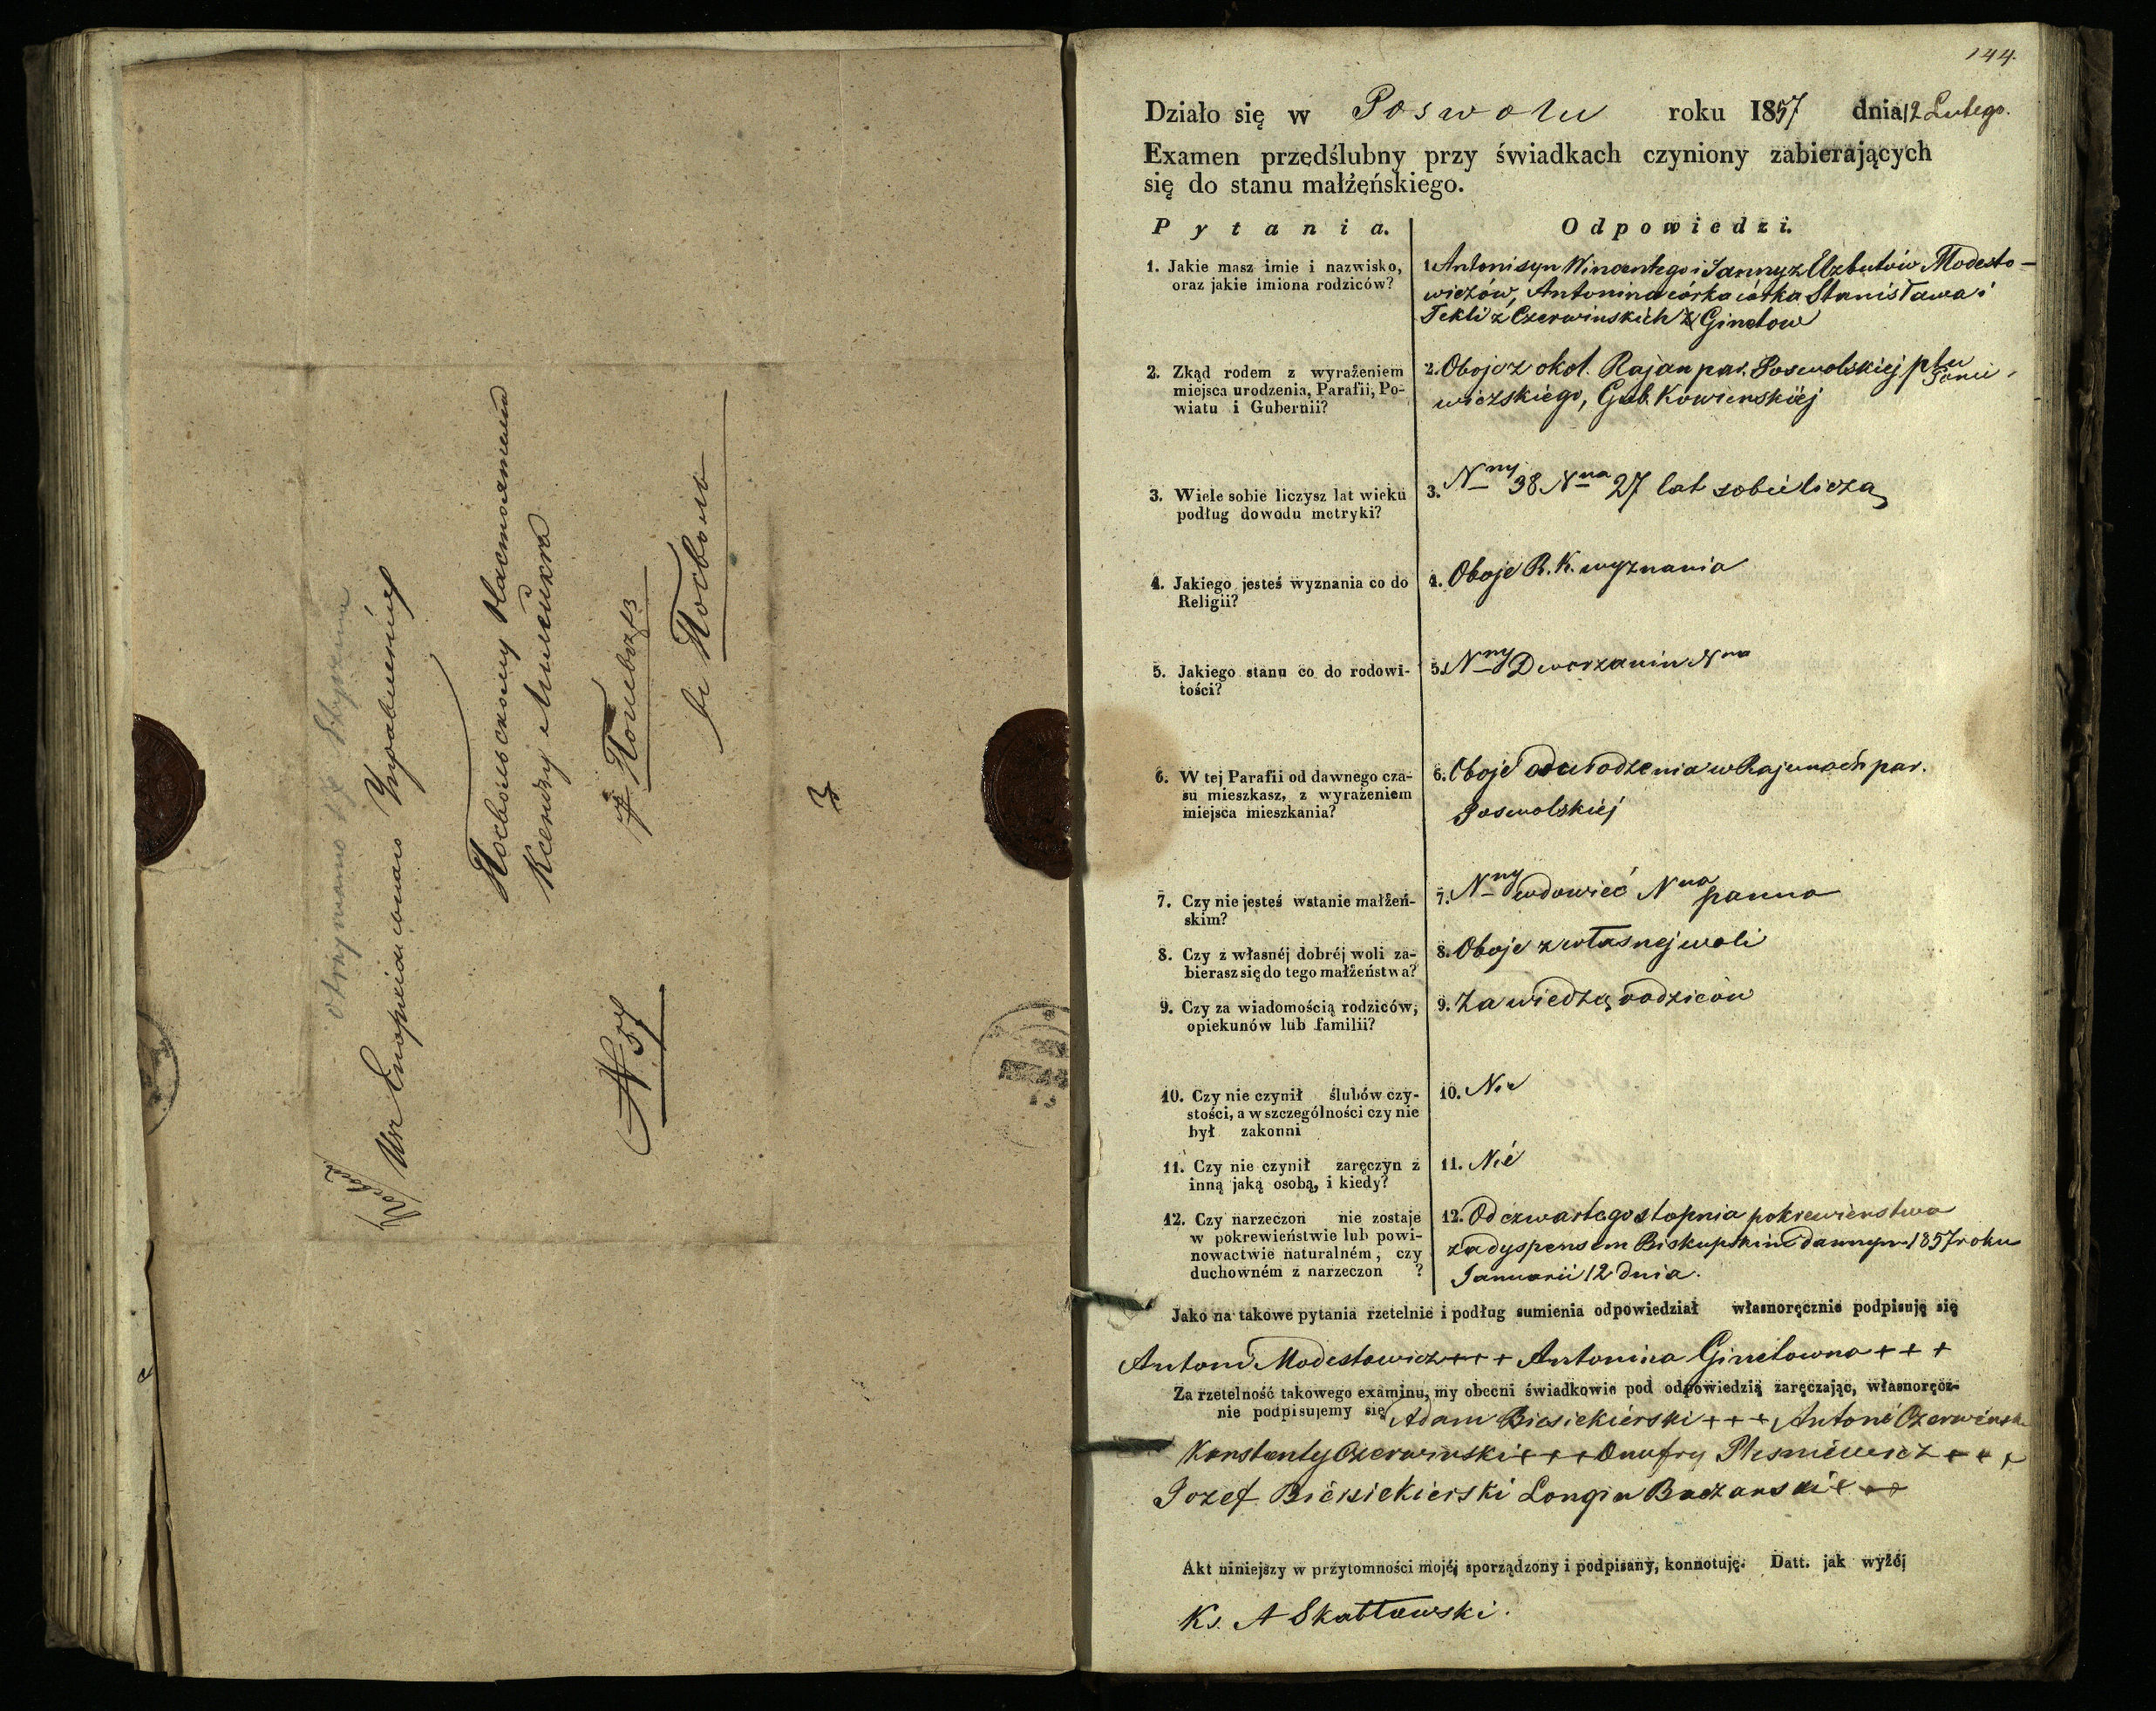 Изъ Епархіальнаго Управленія
Посвольскому Настоятелю
Ксендзу
г. Поневежъ
въ Посволь
N 37
3
144.
Działo się w Poswolu roku 1857 dnia 12 Lutego.
Examen przedślubny przy świadkach czyniony zabierających
się do stanu małżeńskiego.
Pytania. Odpowiedzi.
1. Jakie masz imie i nazwisko,
oraz jakie imiona rodziców?
1. Antoni syn Wincentego i Janny z Elzbutów Modesto-
wiczów, Antonina córka córka Stanisława i
Tekli z Czerwinskich Ginetow
2. Zkąd rodem z wyrażeniem
miejsca urodzenia, Parafii, Po-
wiatu i Gubernii?
2. Oboje z okol. Rajan par. Poswolskiej ptu Ponie-
wiezskiégo, Gub. Kowienskiéj
3. Wiele sobie liczysz lat wieku
podług dowodu metryki?
3. Nny 38 Nna 27 lat sobie liczą
4. Jakiego jesteś wyznania co do
Religii?
4. Oboje R. K. wyznania
5. Jakiego stanu co do rodowi-
tości?
5. Nny Dworzanin Nna
6. W tej Parafii od dawnego cza-
su mieszkasz, z wyrażeniem
miejsca mieszkania?
6. Oboje od urodzenia w Rajunach par.
Poswolskiéj
7. Czy nie jesteś wstanie małżeń-
skim?
7. Nny wdowieć Nna panna
8. Czy z własnéj dobréj woli za-
bierasz się do tego małżeństwa?
8. Oboje z własnej woli
9. Czy za wiadomością rodziców,
opiekunów lub familii?
9. Za wiedzą rodziców
10. Czy nie czynił ślubów czy-
stości, a w szczególności czy nie
był zakonni
10. Nie
11. Czy nie czynił zaręczyn z
inną jaką osobą, i kiedy?
11. Nié
12. Czy narzeczon nie zostaje
w pokrewieństwie lub powi-
nowactwie naturalném, czy
duchowném z narzeczon ?
12. Od czwartego stopnia pokrewienstwa
za dyspensem Biskupskim dannym 1857 roku
Januarii 12 dnia.
Jako na takowe pytania rzetelnie i podług sumienia odpowiedział własnoręcznie podpisuję się
Antoni Modestowicz + + + Antonina Ginetowna + + +
Za rzetelność takowego examinu, my obecni świadkowie pod odpowiedzią zaręczając, własnoręcz-
nie podpisujemy się Adam Biesiekierski + + + Antoni Czerwinsk
Konstanty Czerwinski + + + Onufry Plesniewicz + + +
Jozef Biesiekierski Longin Baczanski + + +
Akt niniejszy w przytomności mojéj sporządzony i podpisany, konnotuję. Datt. jak wyżéj
Ks. A Skabłowski.